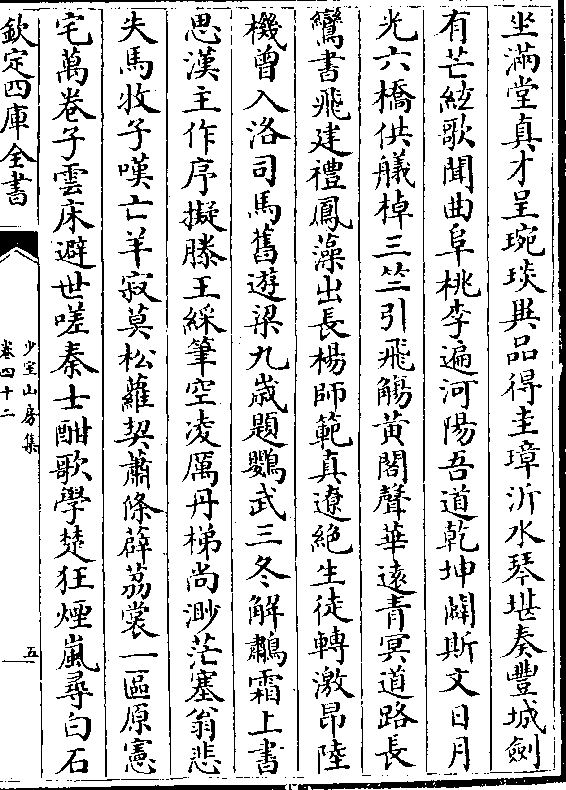 坐滿堂真才呈琬琰異品得圭璋沂水琴堪奏豐城劍
有芒絃歌聞曲阜桃李遍河陽吾道乾坤闢斯文日月
光六橋供艤棹三竺引飛觴黃閣聲華遠青冥道路長
鸞書飛建禮鳳藻出長楊師範真遼絕生徒轉激昂陸
機曾入洛司馬舊遊梁九歲題鸚武三冬解鷫霜上書
思漢主作序擬滕王綵筆空凌厲丹梯尚渺茫塞翁悲
失馬牧子嘆亡羊寂莫松蘿契蕭條薜荔裳一區原憲
宅萬卷子雲床避世嗟秦士酣歌學楚狂煙嵐尋白石
欽定四庫全書
少室山房集
卷四十二
五